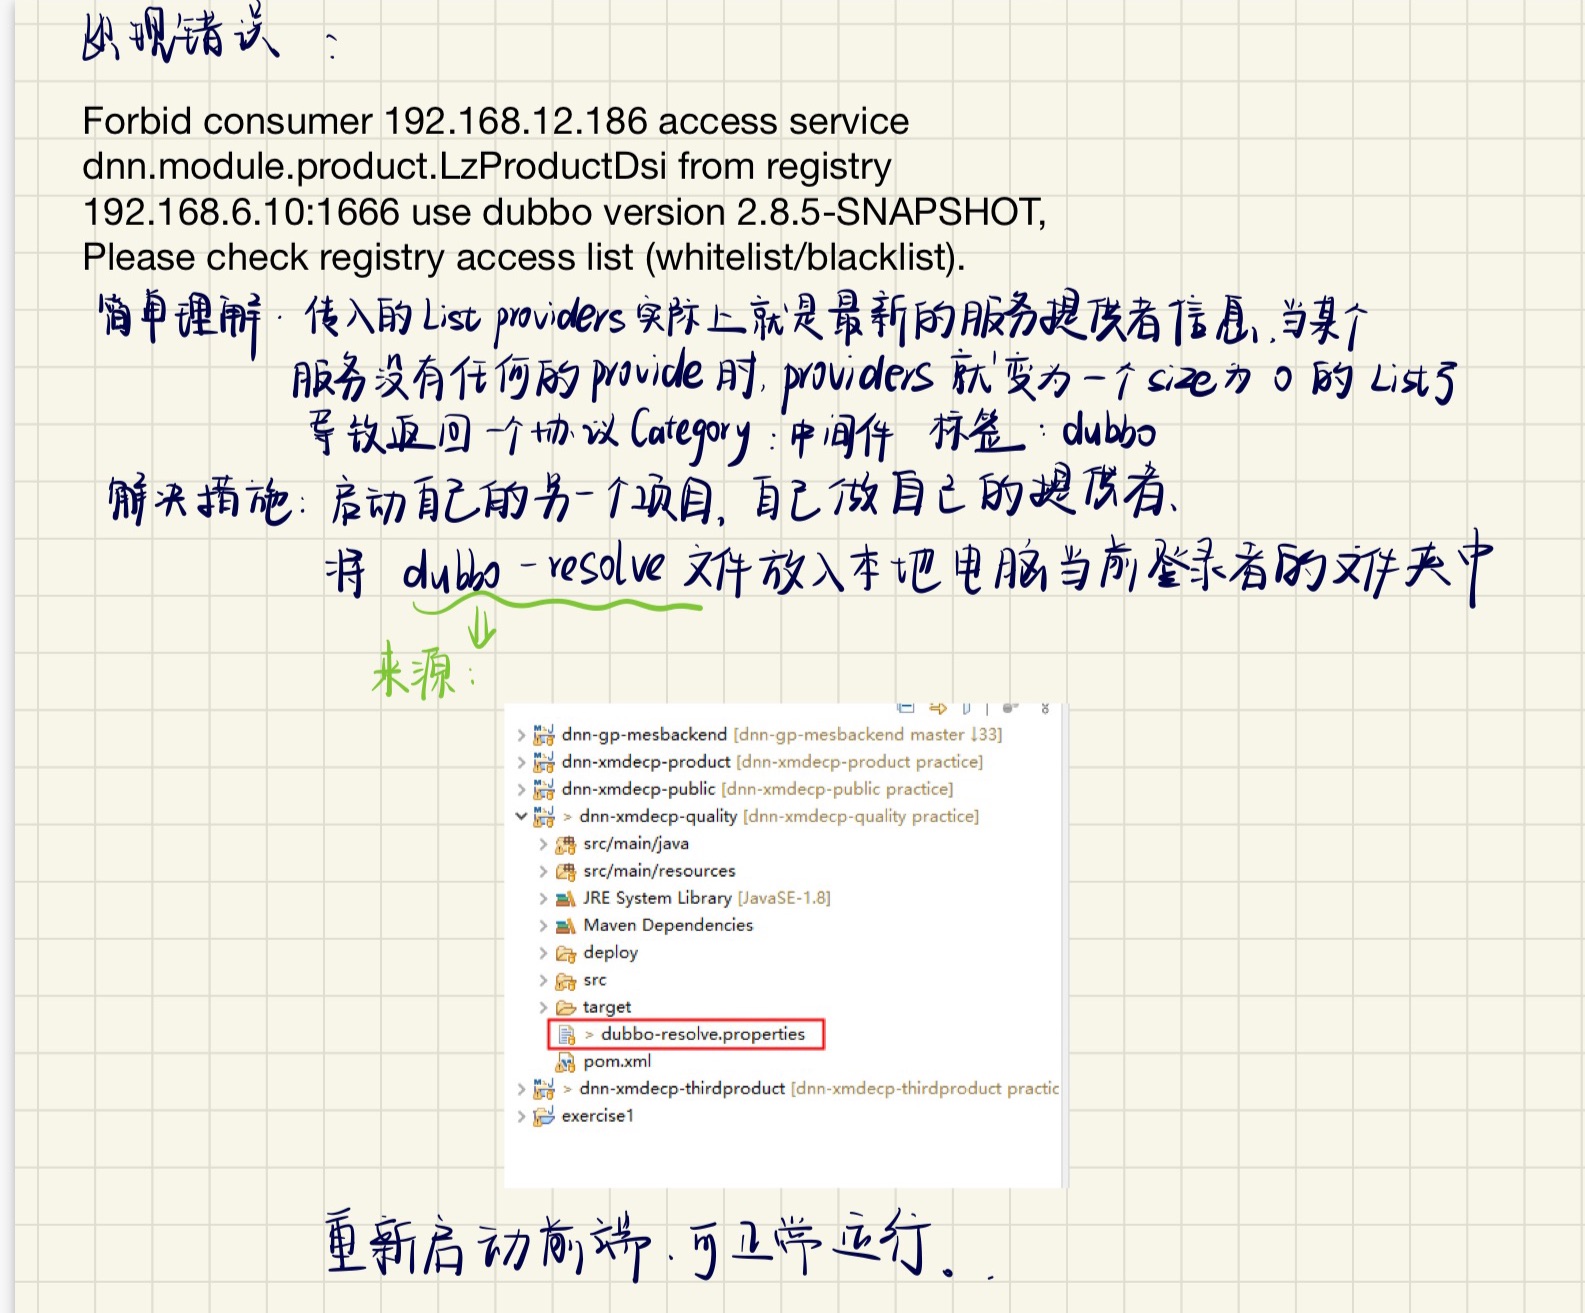 出现错误：
Forbid consumer 192.168.12.186 access service
dnn.module.product.LzProductDsi from registry
192.168.6.10:1666 use dubbo version 2.8.5-SNAPSHOT,
Please check registry access list (whitelist/blacklist).
简单理解. 传入的List providers实际上就是最新的服务提供者信息,当某个
服务没有任何的provide时,providers就变为一个size为0的List了
导致返回一个协议Category:中间件 标签:dubbo
解决措施:启动自己的另一个项目,自己做自己的提供者、
将dubbo-resolve文件放入本地电脑当前登录者的文件夹中
来源:
dnn-gp-mesbackend [dnn-gp-mesbackend master ↓33]
dnn-xmdecp-product [dnn-xmdecp-product practice]
dnn-xmdecp-public [dnn-xmdecp-public practice]
> dnn-xmdecp-quality [dnn-xmdecp-quality practice]
src/main/java
src/main/resources
JRE System Library [JavaSE-1.8]
Maven Dependencies
deploy
src
target
> dubbo-resolve.properties
pom.xml
> dnn-xmdecp-thirdproduct [dnn-xmdecp-thirdproduct practic
exercise1
重新启动前端.可正常运行。.